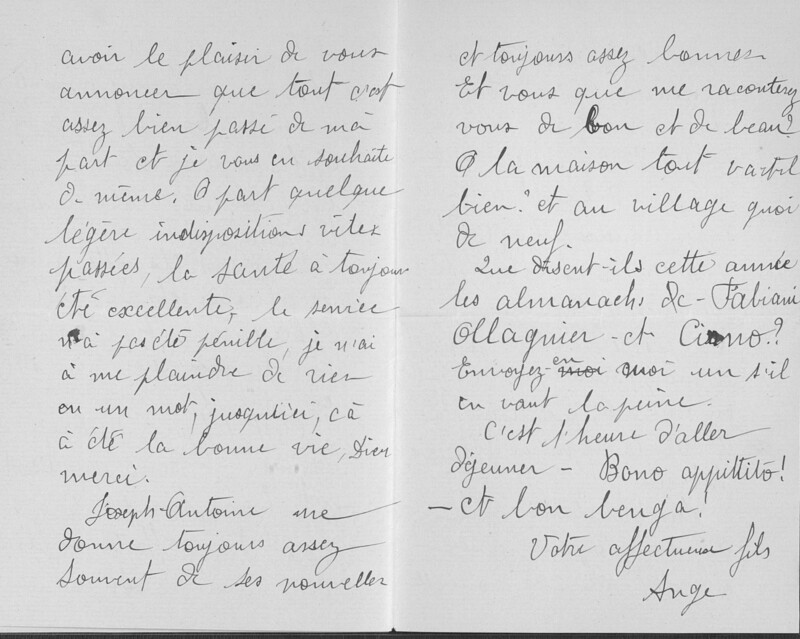 avoir le plaisir de vous
annoncer que tout c'est
assez bien passé de mà
part et je vous en souhaite
de même. A part quelque
légère indispositions vites
passées, la santé à toujour
été excellente, le service
n'à pas été pénible, je n'ai
à me plaindre de rien
en un mot, jusqu'ici, çà
à été la bonne vie, Dieu
merci.
Joseph-Antoine me
donne toujours assez
souvent de ses nouvelles
et toujours assez bonnes
Et vous que me raconterez
vous de bon et de beau?
A la maison tout va-t-il
bien? et au village quoi
de neuf.
Que disent-ils cette année
les almanachs de - Fabiani
Ollagnier - et Cirno?
Envoyez-en moi un s'il
en vaut la peine.
C'est l'heure d'aller
déjeuner - Bono appittito!
- et bon benga!
Votre affectueux fils
Ange